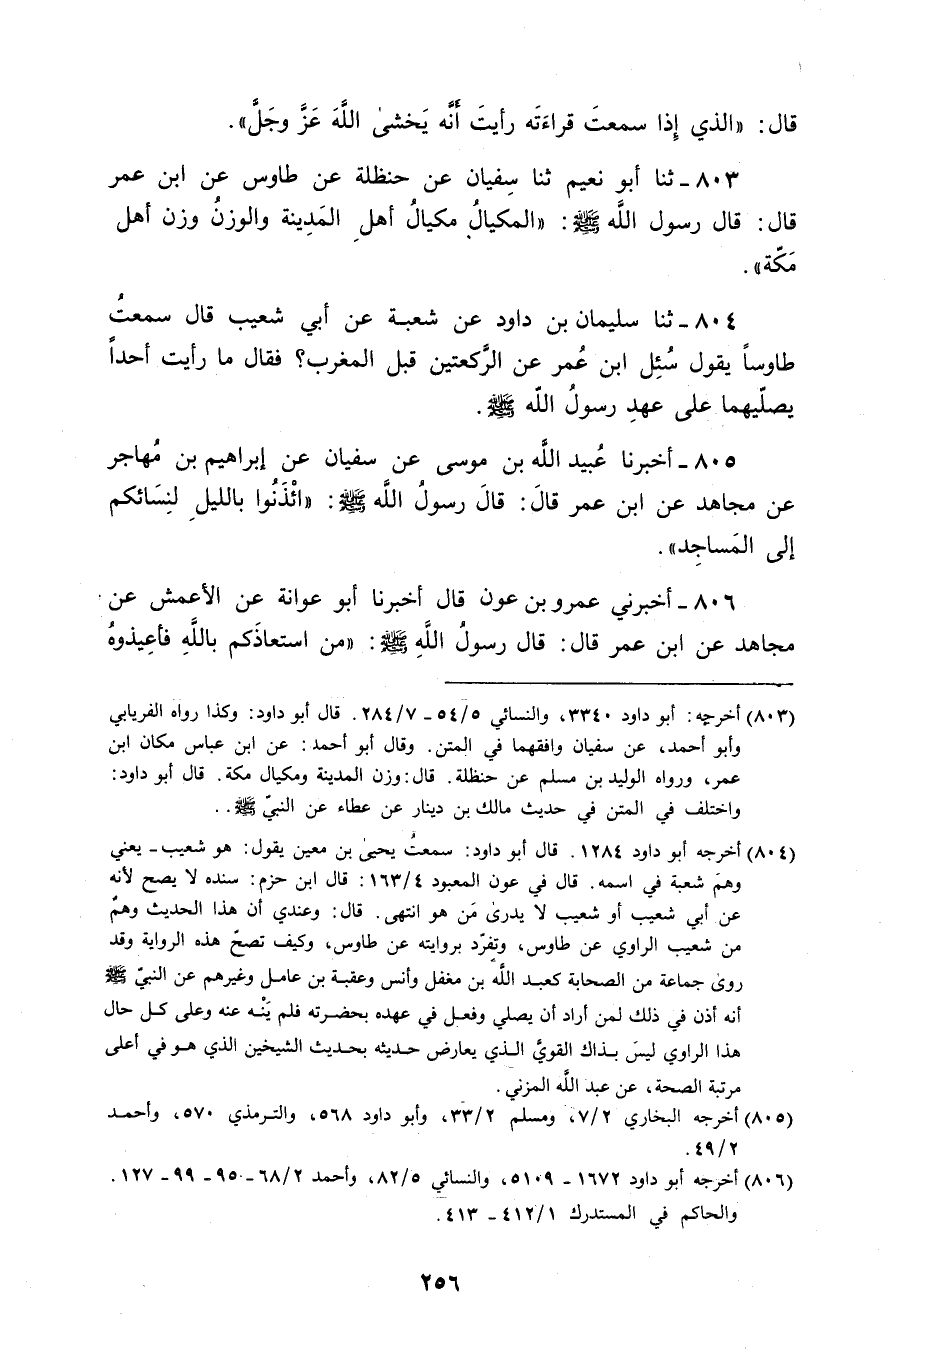 قال: «الذي إِذا سمعتَ قراءَتَه رأيتَ أَنَّه يَخشىٰ اللَّهَ عَزَّ وجَلَّ».
٨٠٣ - ثنا أبو نعيم ثنا سِفيان عن حنظلة عن طاوس عن ابن عمر
قال: قال رسول اللَّه ﷺ: «المكيالُ مكيالُ أهلِ المَدِينة والوزنُ وزن أهل
مَكّة».
٨٠٤ - ثنا سليمان بن داود عن شعبة عن أبي شعيب قال سمعتُ
طاوساً يقول سُئِل ابن عُمر عن الرَّكعتين قبل المغرب؟ فقال ما رأيت أحداً
يصلّيهما على عهدِ رسولُ اللّه ﷺ.
٨٠٥ - أخبرنا عُبيد اللَّه بن موسى عن سفيان عن إبراهيم بن مُهاجر
عن مجاهد عن ابن عمر قالَ: قالَ رسولُ اللَّه ﷺ: «ائْذَنُوا بالليلِ لنِسَائكم
إلى المَساجِد».
٨٠٦ - أخبرني عمرو بن عون قال أخبرنا أبو عوانة عن الأعمش عن
مجاهد عن ابن عمر قال: قال رسولُ اللَّهِ ﷺ: «من استعاذَكم باللَّهِ فأعِيذوهُ
(٨٠٣) أخرجه: أبو داود ٣٣٤٠، والنسائي ٥٤/٥ - ٢٨٤/٧. قال أبو داود: وكذا رواه الفريابي
وأبو أحمد، عن سفيان وافقهما في المتن. وقال أبو أحمد: عن ابن عباس مكان ابن
عمر، ورواه الوليد بن مسلم عن حنظلة. قال: وزن المدينة ومكيال مكة. قال أبو داود:
واختلف في المتن في حديث مالك بن دينار عن عطاء عن النبيّ ﷺ..
(٨٠٤) أخرجه أبو داود ١٢٨٤. قال أبو داود: سمعتُ يحيىٰ بن معين يقول: هو شعيب - يعني
وهمَ شعبة في اسمه. قال في عون المعبود ١٦٣/٤: قال ابن حزم: سنده لا يصح لأنه
عن أبي شعيب أو شعيب لا يدرىٰ مَن هو انتهى. قال: وعندي أن هذا الحديث وهمٌ
من شعيب الراوي عن طاوس، وتفرّد بروايته عن طاوس، وكيف تصحّ هذه الرواية وقد
روىٰ جماعة من الصحابة كعبد اللَّه بن مغفل وأنس وعقبة بن عامل وغيرهم عن النبيّ ﷺ
أنه أذن في ذلك لمن أراد أن يصلي وفعل في عهده بحضرته فلم يَنْه عنه وعلى كل حال
هذا الراوي ليسَ بذاك القويّ الذي يعارض حديثه بحديث الشيخين الذي هو في أعلى
مرتبة الصحة، عن عبد اللَّه المزني.
(٨٠٥) أخرجه البخاري ٧/٢، ومسلم ٣٣/٢، وأبو داود ٥٦٨، والترمذي ٥٧٠، وأحمد
٤٩/٢.
(٨٠٦) أخرجه أبو داود ١٦٧٢ - ٥١٠٩، والنسائي ٨٢/٥، وأحمد ٦٨/٢ - ٩٥ - ٩٩ - ١٢٧.
والحاكم في المستدرك ٤١٢/١ - ٤١٣.
٢٥٦